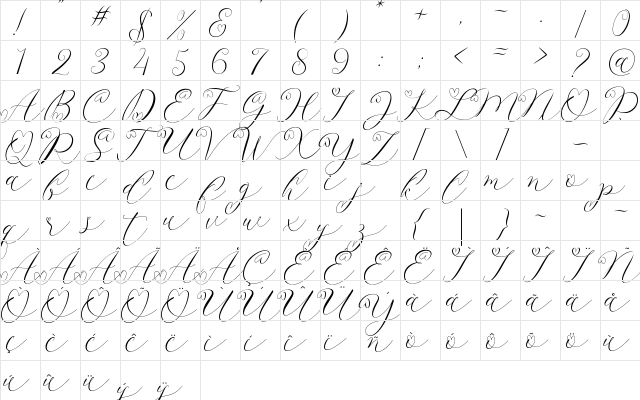 ! " # $ % & ' ( ) * + , - . / 0
1 2 3 4 5 6 7 8 9 : ; < = > ? @
A B C D E F G H I J K L M N O P
Q R S T U V W X Y Z [ \ ] ~
a b c d e f g h i j k l m n o p
q r s t u v w x y z { | } ~ ¯
À Á Â Ã Ä Å Ç È É Ê Ë Ì Í Î Ï Ñ
Ò Ó Ô Õ Ö Ù Ú Û Ü Ý à á â ã ä å
ç è é ê ë ì í î ï ñ ò ó ô õ ö ù
ú û ü ý ÿ